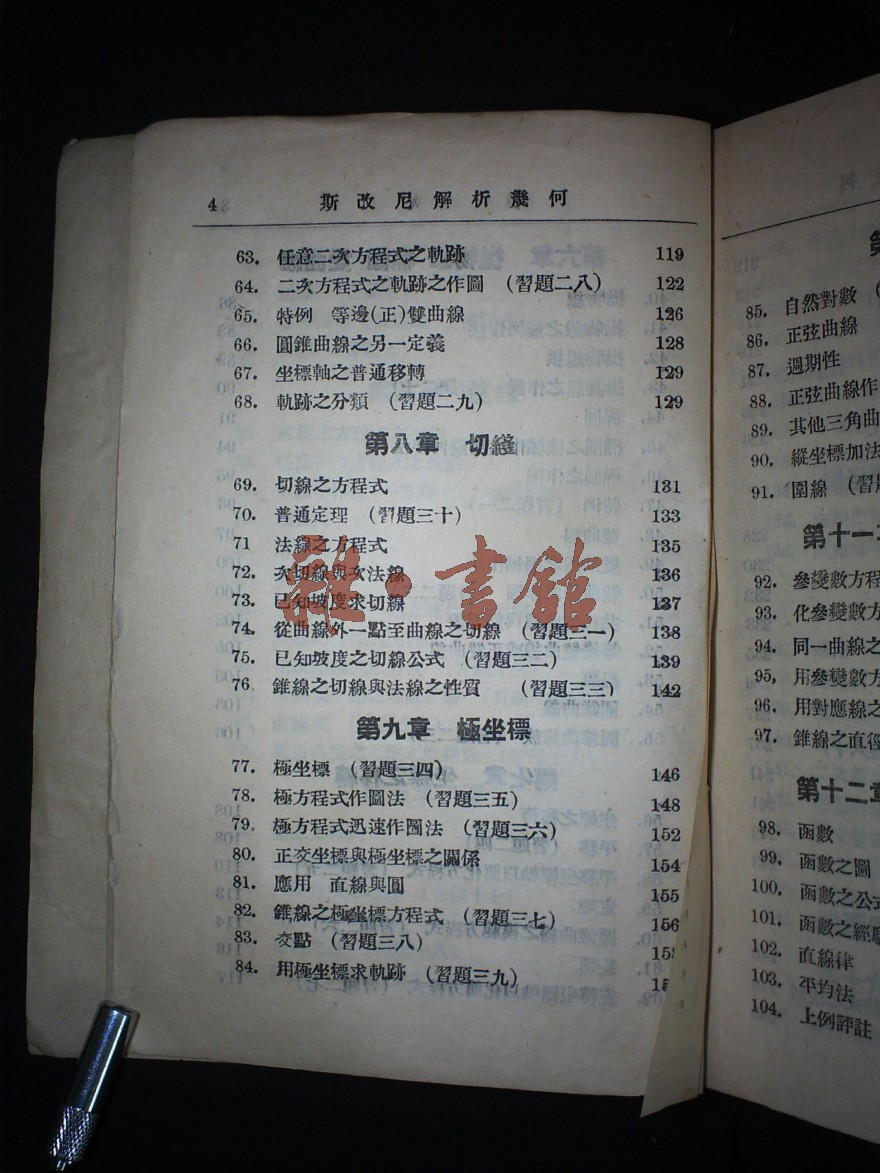 4 斯改尼解析幾何
63. 任意二次方程式之軌跡 119
64. 二次方程式之軌跡之作圖 (習題二八) 122
65. 特例 等邊(正)雙曲線 126
66. 圓錐曲線之另一定義 128
67. 坐標軸之普通移轉 129
68. 軌跡之分類 (習題二九) 129
第八章 切綫
69. 切線之方程式 131
70. 普通定理 (習題三十) 133
71 法線之方程式 135
72. 次切線與次法線 136
73. 已知坡度求切線 137
74. 從曲線外一點至曲線之切線 (習題三一) 138
75. 已知坡度之切線公式 (習題三二) 139
76. 錐線之切線與法線之性質 (習題三三) 142
第九章 極坐標
77. 極坐標 (習題三四) 146
78. 極方程式作圖法 (習題三五) 148
79. 極方程式迅速作圖法 (習題三六) 152
80. 正交坐標與極坐標之關係 154
81. 應用 直線與圓 155
82. 錐線之極坐標方程式 (習題三七) 156
83. 交點 (習題三八) 15
84. 用極坐標求軌跡 (習題三九) 15
書館
第
85. 自然對數 (
86. 正弦曲線
87. 週期性
88. 正弦曲線作
89. 其他三角曲
90. 縱坐標加法
91. 圍線 (習
第十一
92. 參變數方程
93. 化參變數方
94. 同一曲線之
95, 用參變數方
96. 用對應線之
97. 錐線之直徑
第十二章
98. 函數
99. 函數之圖
100. 函數之公式
101. 函數之經驗
102. 直線律
103. 平均法
104. 上例評註